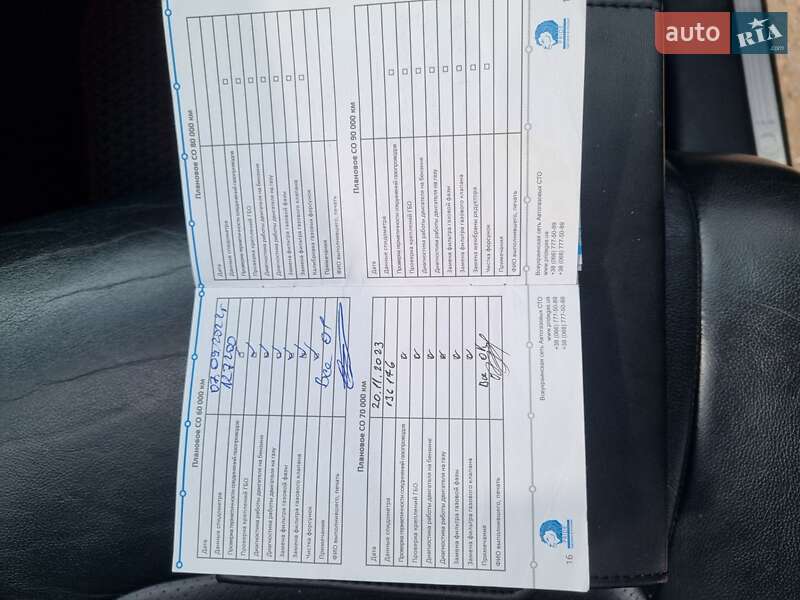 auto RIA.com
Плановое СО 60 000 км
Дата 07.09.2022г
Данные спидометра 127200
Проверка герметичности соединений газопроводов
Проверка креплений ГБО
Диагностика работы двигателя на бензине
Диагностика работы двигателя на газу
Замена фильтра газовой фазы
Замена фильтра газового клапана
Чистка форсунок
Примечания Все ОК
ФИО выполнившего, печать
Плановое СО 70 000 км
Дата 20.11.2023
Данные спидометра 136146
Проверка герметичности соединений газопроводов
Проверка креплений ГБО
Диагностика работы двигателя на бензине
Диагностика работы двигателя на газу
Замена фильтра газовой фазы
Замена фильтра газового клапана
Примечания Все ОК
ФИО выполнившего, печать
16
Всеукраинская сеть Автогазовых СТО
www.profigas.ua
+38 (098) 777-50-89
+38 (066) 777-50-89
Плановое СО 80 000 км
Дата
Данные спидометра
Проверка герметичности соединений газопроводов
Проверка креплений ГБО
Диагностика работы двигателя на бензине
Диагностика работы двигателя на газу
Замена фильтра газовой фазы
Замена фильтра газового клапана
Калибровка газовых форсунок
Примечания
ФИО выполнившего, печать
Плановое СО 90 000 км
Дата
Данные спидометра
Проверка герметичности соединений газопроводов
Проверка креплений ГБО
Диагностика работы двигателя на бензине
Диагностика работы двигателя на газу
Замена фильтра газовой фазы
Замена фильтра газового клапана
Замена мембраны редуктора
Чистка форсунок
Примечания
ФИО выполнившего, печать
Всеукраинская сеть Автогазовых СТО
+38 (098) 777-50-89
+38 (066) 777-50-89